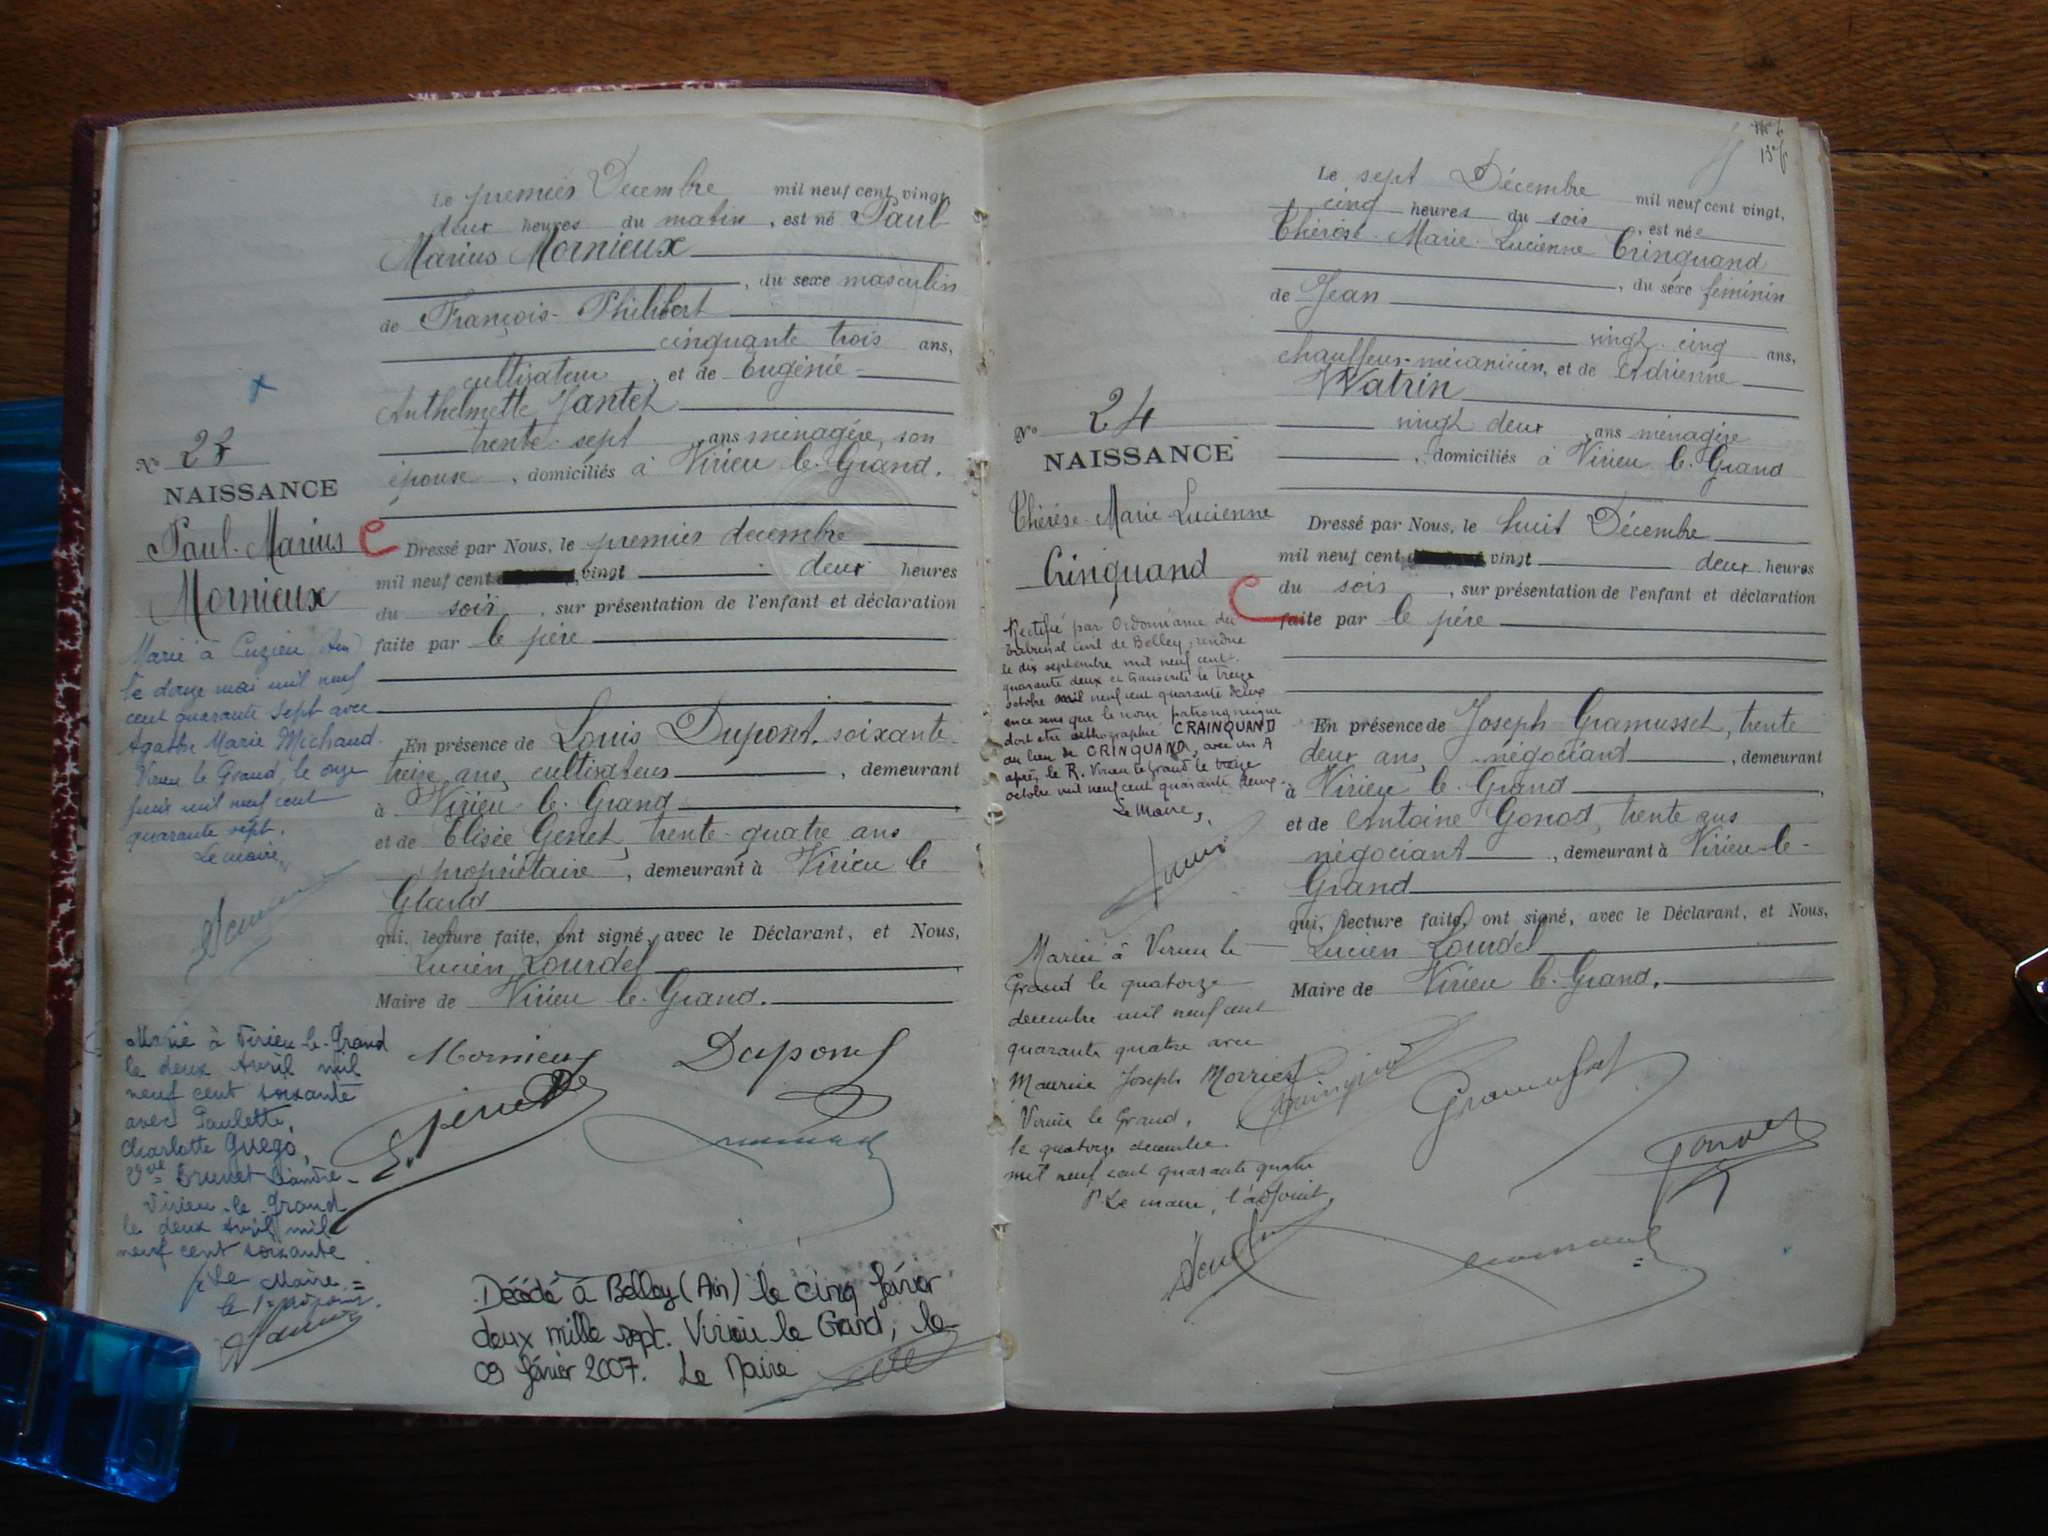 Le premier Décembre mil neuf cent vingt,
deux heures du matin, est né Paul
Marius Mornieux
, du sexe masculin
de François-Philibert
cinquante trois ans,
cultivateur, et de Eugénie
Anthelmette Jantet
trente-sept, ans ménagère, son
épouse, domiciliés à Virieu le-Grand.
No 23
NAISSANCE
Paul-Marius
Mornieux
Dressé par Nous, le premier decembre
mil neuf cent vingt deux heures
du soir, sur présentation de l'enfant et déclaration
faite par le père
En présence de Louis Dupont, soixante-
treize ans, cultivateur, demeurant
à Virieu-le-Grand,
et de Elisée Genet, trente-quatre ans
propriétaire, demeurant à Virieu le
Grand
qui, lecture faite, ont signé, avec le Déclarant, et Nous,
Lucien Lourdel
Maire de Virieu le-Grand.
Marié à Cuzieu (Ain)
le douze mai mil neuf
cent quarante sept avec
Agathe Marie Michaud.
Virieu le Grand, le onze
juin mil neuf cent
quarante sept.
Le maire,
Marié à Virieu-le-Grand
le deux Avril mil
neuf cent soixante
avec Paulette,
Charlotte Guego,
Vve Brunet
Virieu-le-Grand
le deux Avril mil
neuf cent soixante
p. Le Maire =
Mornieux Dupont
Décédé à Belley (Ain) le cinq février
deux mille sept. Virieu le Grand, le
09 février 2007. Le Maire
Le sept Décembre mil neuf cent vingt,
cinq heures du soir, est née
Thérèse-Marie-Lucienne Crinquand
, du sexe féminin
de Jean
vingt-cinq ans,
chauffeur-mécanicien, et de Adrienne
Watrin
vingt deux, ans ménagère
, domiciliés à Virieu le-Grand
No 24
NAISSANCE
Thérèse-Marie-Lucienne
Crinquand
Dressé par Nous, le huit Décembre
mil neuf cent vingt deux heures
du soir, sur présentation de l'enfant et déclaration
faite par le père
En présence de Joseph Gramusset, trente
deux ans, négociant, demeurant
à Virieu le-Grand,
et de Antoine Gonod, trente ans
négociant, demeurant à Virieu-le-
Grand
qui, lecture faite, ont signé, avec le Déclarant, et Nous,
Lucien Lourdel
Maire de Virieu le-Grand.
Rectifié par Ordonnance du
tribunal Civil de Belley, rendue
le dix septembre mil neuf cent
quarante deux et transcrite le treize
octobre mil neuf cent quarante deux
en ce sens que le nom patronymique
doit être orthographié CRAINQUAND
au lieu de CRINQUAND, avec un A
après le R. Virieu le Grand le treize
octobre mil neuf cent quarante deux.
Le Maire,
Mariée à Virieu le
Grand le quatorze
decembre mil neuf cent
quarante quatre avec
Maurice Joseph
Virieu le Grand,
le quatorze decembre
mil neuf cent quarante quatre
P. Le maire, l'adjoint,